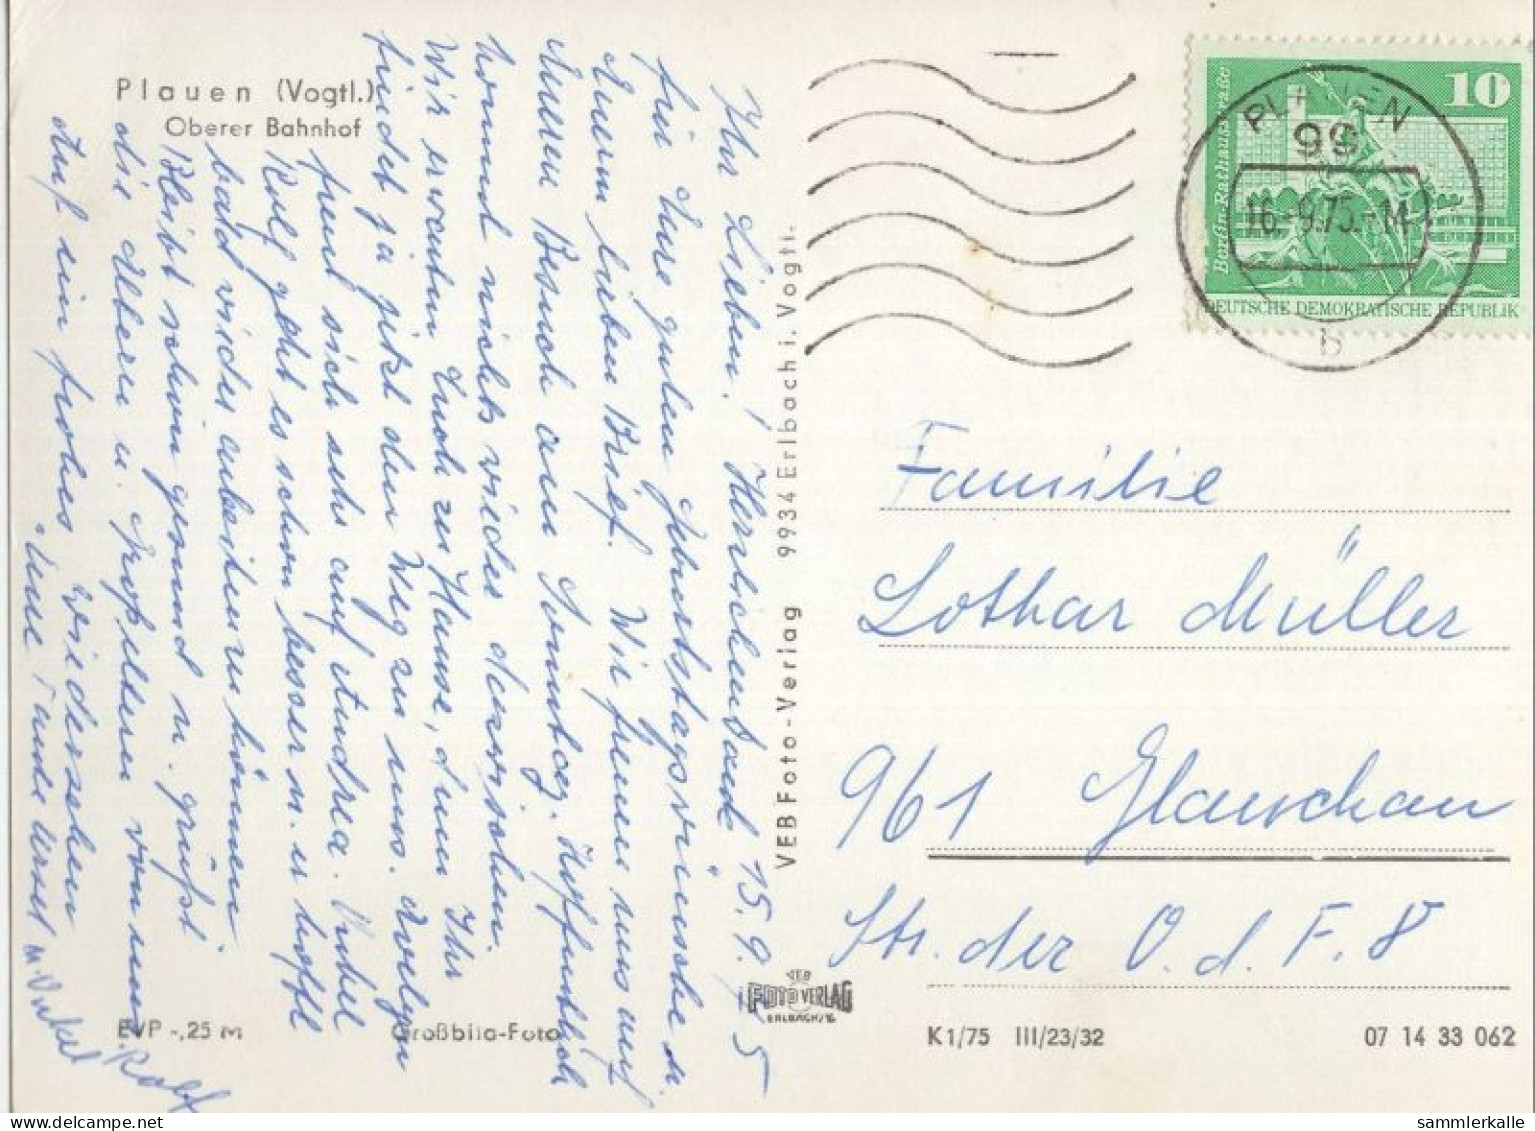 Plauen (Vogtl.)
Oberer Bahnhof
Ihr Lieben! Herlschenbach 15.9.75
für Eure guten Geburtstagswünsche u.
Euern lieben Brief. Wir freuen uns auf
Euren Besuch am Sonntag. Hoffentlich
kommt nichts wieder dazwischen.
Wir erwarten Euch zu Hause, denn Ihr
findet ja jetzt den Weg zu uns. Evelyn
freut sich sehr auf Andrea. Onkel
Rolf geht es schon besser u. er hofft
bald wieder arbeiten zu können.
Bleibt schön gesund u. grüßt
die Eltern u. Großeltern von uns
Auf ein frohes Wiedersehen
Eure Tante Ursel u. Onkel
Rolf
VEB Foto-Verlag 9934 Erlbach i. Vogtl.
EVP -,25 M
Großbild-Foto
VEB
FOTO VERLAG
ERLBACH/V.
10
Berlin-Rathausstraße
DEUTSCHE DEMOKRATISCHE REPUBLIK
PLAUEN
99
16.-9.75.-14
b
Familie
Lothar Müller
961 Glauchau
Str. der O. d. F. 8
K 1/75 III/23/32
07 14 33 062
sammlerkalle